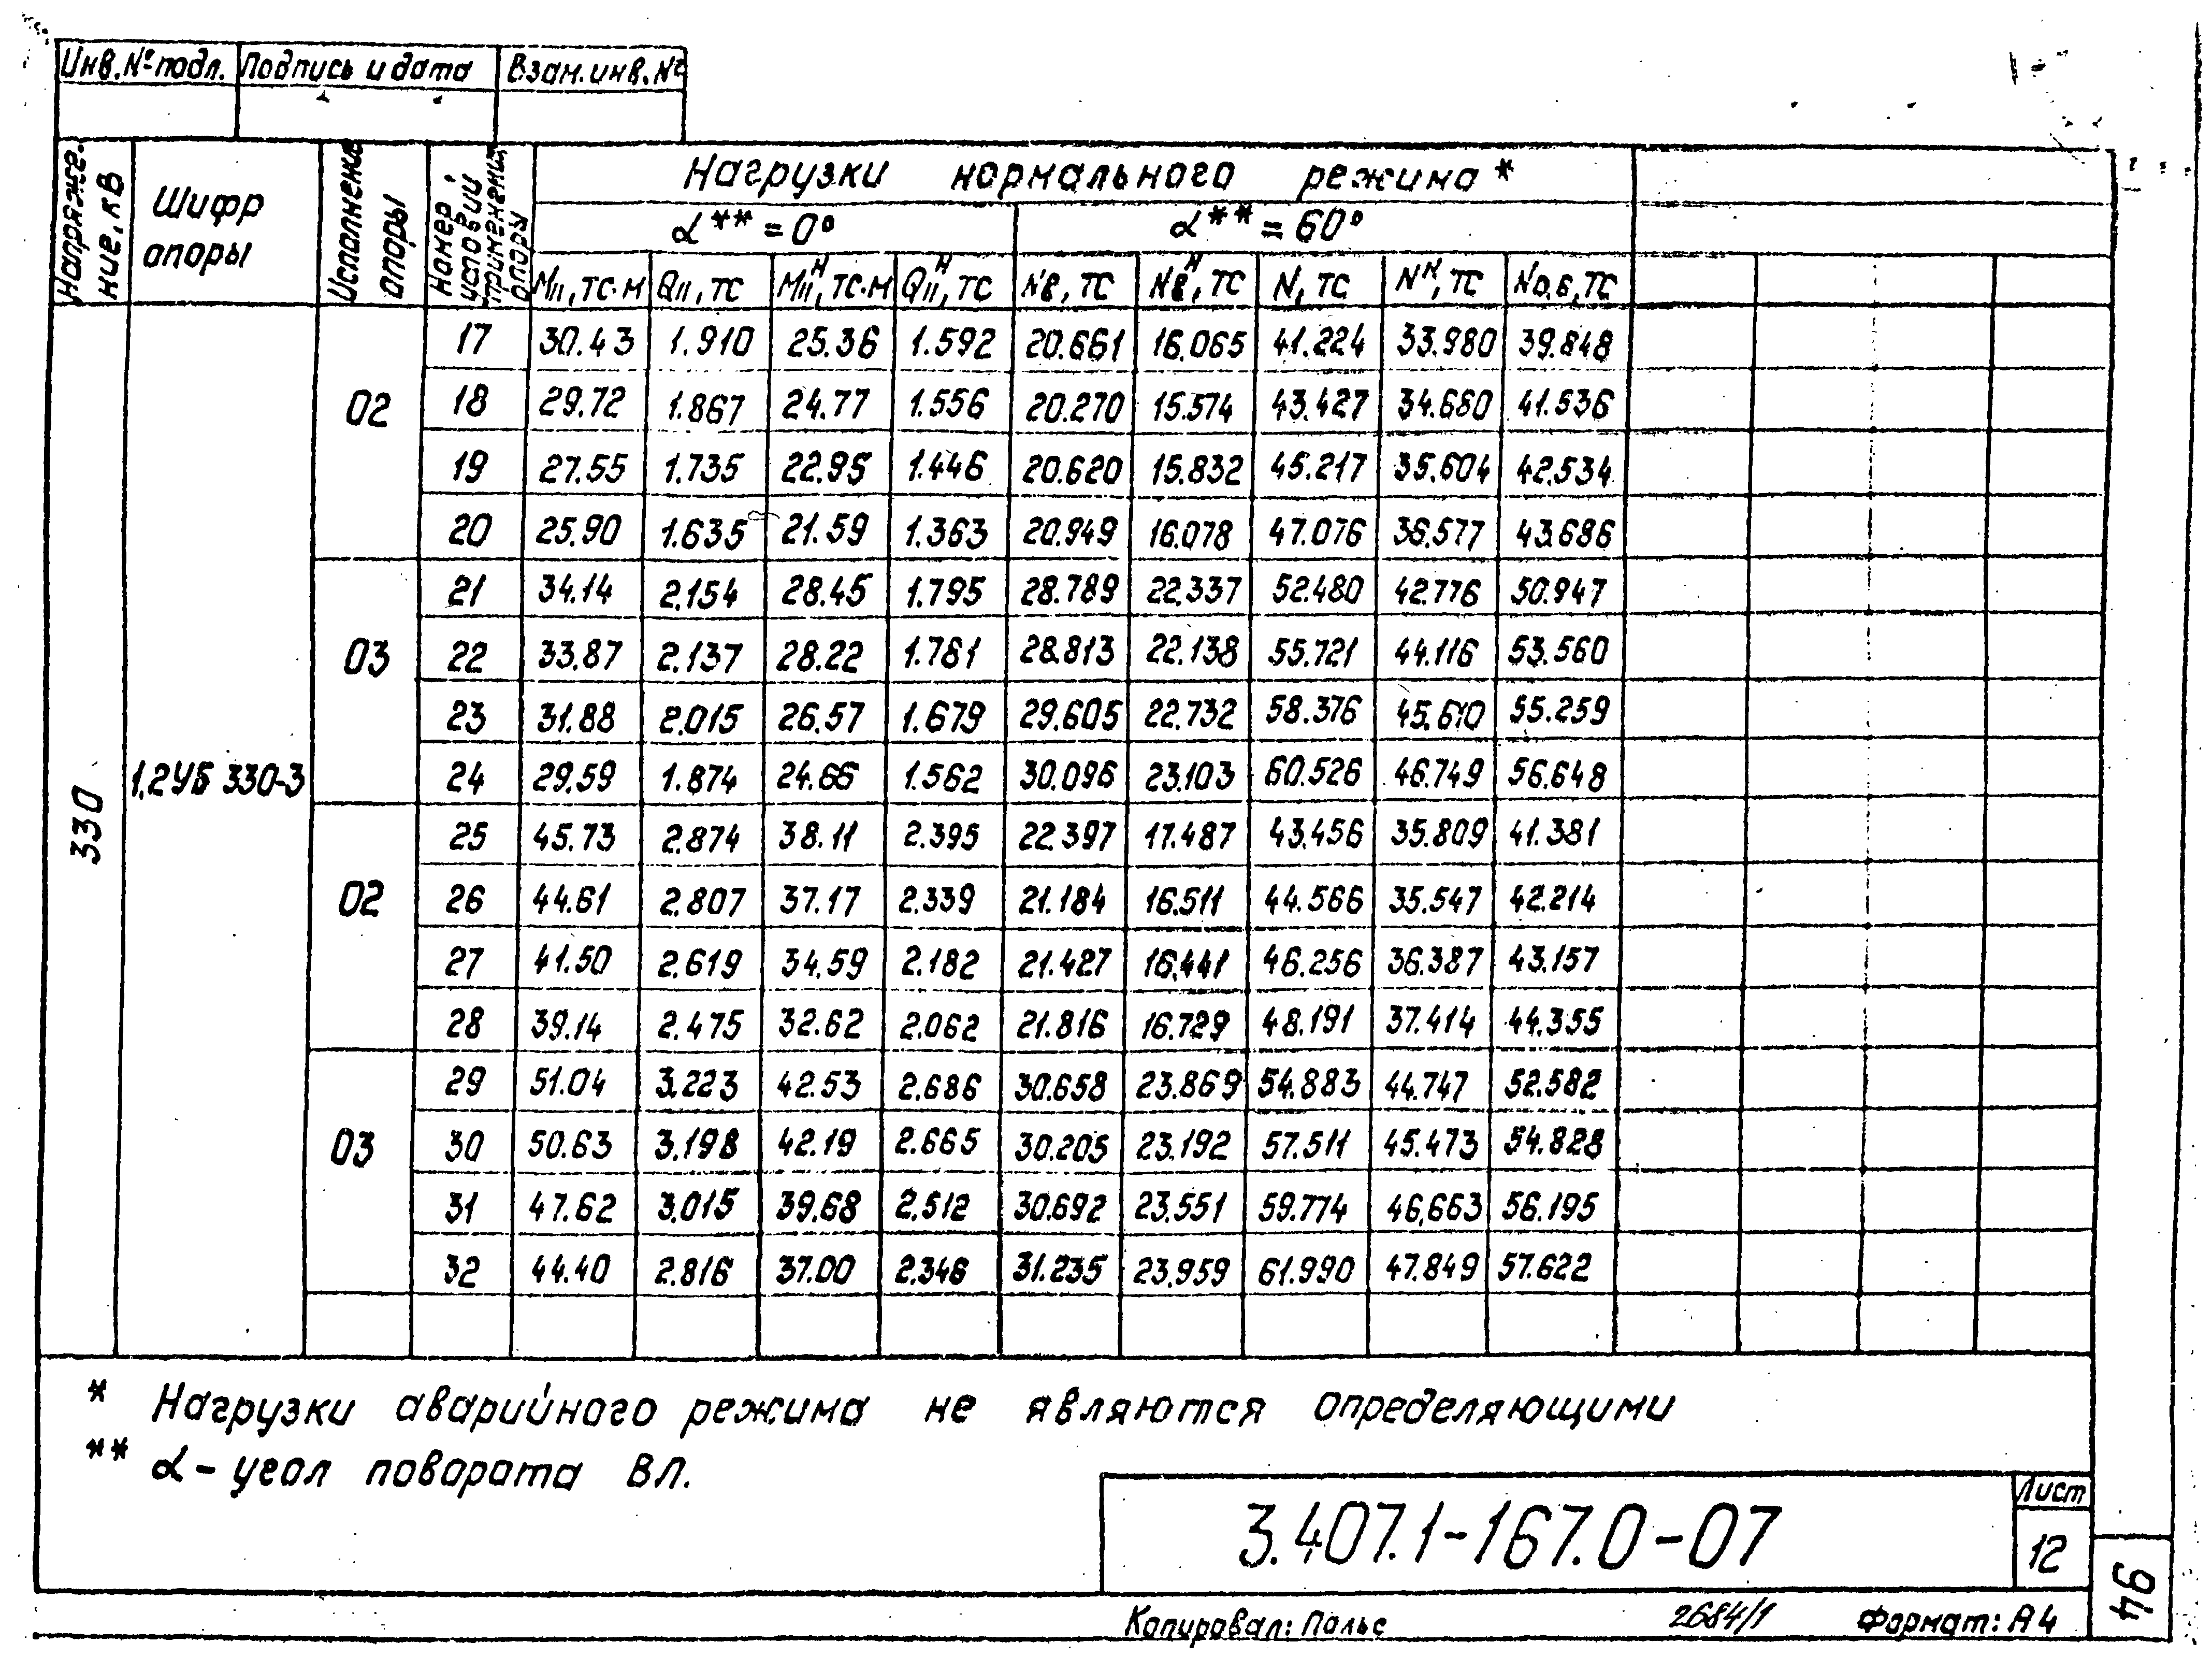 Инв.№подл. Подпись и дата Взам.инв.№
Напряже-
ние, кВ
Шифр
опоры
Исполнение
опоры
Номер
условий
применения
опоры
Нагрузки нормального режима*
α** = 0° α** = 60°
MII, тс·м QII, тс MIIн, тс·м QIIн, тс Nв, тс Nвн, тс N, тс Nн, тс N0.6, тс
330
1,2УБ 330-3
02
17 30.43 1.910 25.36 1.592 20.661 16.065 41.224 33.980 39.848
18 29.72 1.867 24.77 1.556 20.270 15.574 43.427 34.680 41.536
19 27.55 1.735 22.95 1.446 20.620 15.832 45.217 35.604 42.534
20 25.90 1.635 21.59 1.363 20.949 16.078 47.076 36.577 43.686
03
21 34.14 2.154 28.45 1.795 28.789 22.337 52.480 42.776 50.947
22 33.87 2.137 28.22 1.781 28.813 22.138 55.721 44.116 53.560
23 31.88 2.015 26.57 1.679 29.605 22.732 58.376 45.610 55.259
24 29.59 1.874 24.66 1.562 30.096 23.103 60.526 46.749 56.648
02
25 45.73 2.874 38.11 2.395 22.397 17.487 43.456 35.809 41.381
26 44.61 2.807 37.17 2.339 21.184 16.511 44.566 35.547 42.214
27 41.50 2.619 34.59 2.182 21.427 16.441 46.256 36.387 43.157
28 39.14 2.475 32.62 2.062 21.816 16.729 48.191 37.414 44.355
03
29 51.04 3.223 42.53 2.686 30.658 23.869 54.883 44.747 52.582
30 50.63 3.198 42.19 2.665 30.205 23.192 57.511 45.473 54.828
31 47.62 3.015 39.68 2.512 30.692 23.551 59.774 46.663 56.195
32 44.40 2.816 37.00 2.346 31.235 23.959 61.990 47.849 57.622
* Нагрузки аварийного режима не являются определяющими
** α - угол поворота ВЛ.
3.407.1-167.0-07
Лист
12
94
Копировал: Польс 2684/1 Формат: А4